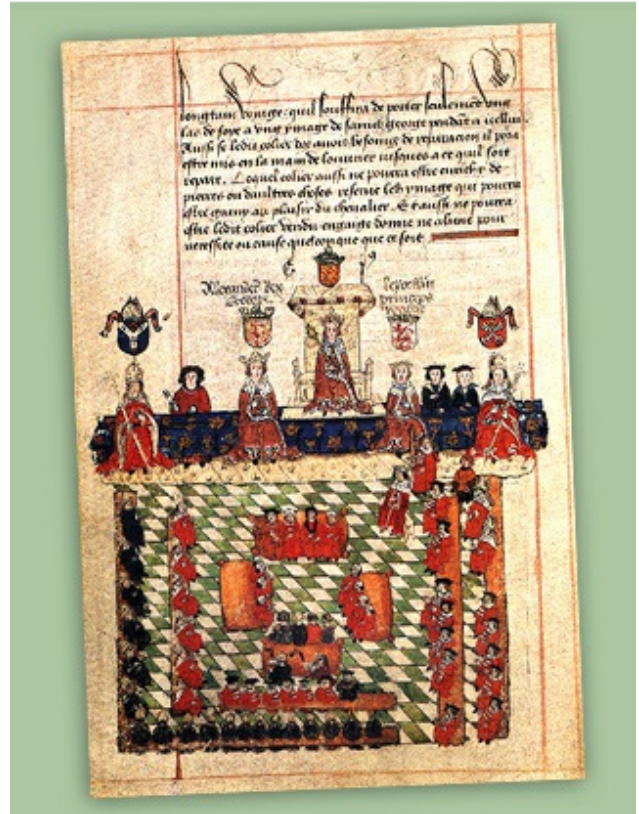 longtain voiaige: quil souffira de porter seulement ung
las de soye a ung ymage de sainct george pendãt a icelluy.
Aussi se ledit colier doit avoir besoing de reparacion il pora
estre mis en la main de louurier iusques a ce quil soit
repare. Lequel colier aussi ne pourra estre enrichy de
pierres ou daultres choses reserve led ymage qui pourra
estre garny au plaisir du chevalier. Et aussi ne pourra
estre ledit colier vendu engaige donne ne aliene pour
necessite ou cause quelconque que ce soit
Alexander Rex
princeps